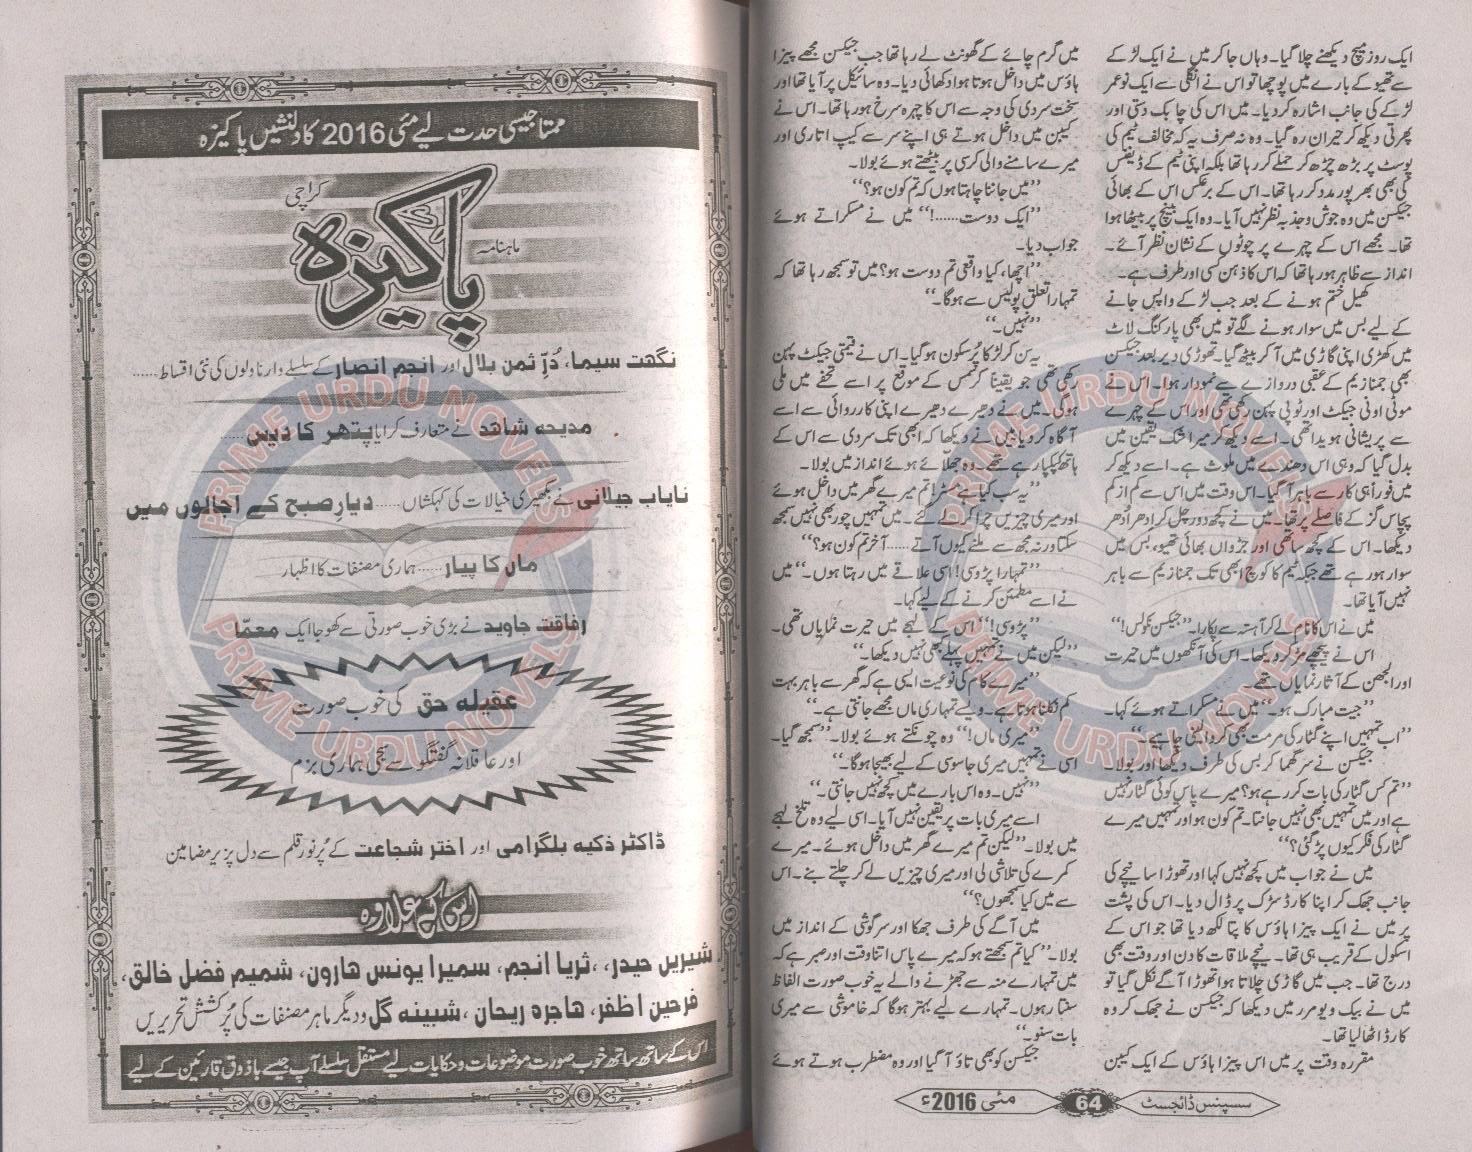 ایک روز میچ دیکھنے چلا گیا۔ وہاں جا کر میں نے ایک لڑکے
سے تھیو کے بارے میں پوچھا تو اس نے انگلی سے ایک نو عمر
لڑکے کی جانب اشارہ کر دیا۔ میں اس کی چابک دستی اور
پھرتی دیکھ کر حیران رہ گیا۔ وہ نہ صرف یہ کہ مخالف ٹیم کی
پوسٹ پر بڑھ چڑھ کر حملے کر رہا تھا بلکہ اپنی ٹیم کے ڈیفنس
کی بھی بھرپور مدد کر رہا تھا۔ اس کے برعکس اس کے بھائی
جیکسن میں وہ جوش و جذبہ نظر نہیں آیا۔ وہ ایک بینچ پر بیٹھا ہوا
تھا۔ مجھے اس کے چہرے پر چوٹوں کے نشان نظر آئے۔
انداز سے ظاہر ہو رہا تھا کہ اس کا ذہن کسی اور طرف ہے۔
کھیل ختم ہونے کے بعد جب لڑکے واپس جانے
کے لیے بس میں سوار ہونے لگے تو میں بھی پارکنگ لاٹ
میں کھڑی اپنی گاڑی میں آ کر بیٹھ گیا۔ تھوڑی دیر بعد جیکسن
بھی جمنازیم کے عقبی دروازے سے نمودار ہوا۔ اس نے
موٹی اونی جیکٹ اور ٹوپی پہن رکھی تھی اور اس کے چہرے
سے پریشانی ہویدا تھی۔ اسے دیکھ کر میرا شک یقین میں
بدل گیا کہ وہی اس دھندے میں ملوث ہے۔ اسے دیکھ کر
میں فوراً ہی کار سے باہر آ گیا۔ اس وقت میں اس سے کم از کم
پچاس گز کے فاصلے پر تھا۔ میں نے کچھ دور چل کر ادھر اُدھر
دیکھا۔ اس کے کچھ ساتھی اور جڑواں بھائی تھیو، بس میں
سوار ہو رہے تھے جبکہ ٹیم کا کوچ ابھی تک جمنازیم سے باہر
نہیں آیا تھا۔
میں نے اس کا نام لے کر آہستہ سے پکارا۔ ”جیکسن نکولس!“
اس نے پیچھے مڑ کر دیکھا۔ اس کی آنکھوں میں حیرت
اور الجھن کے آثار نمایاں تھے۔
”جیت مبارک ہو۔“ میں نے مسکراتے ہوئے کہا۔
”اب تمہیں اپنے گٹار کی مرمت بھی کروا لینی چاہیے۔“
جیکسن نے سر گھما کر بس کی طرف دیکھا اور بولا۔
”تم کس گٹار کی بات کر رہے ہو؟ میرے پاس کوئی گٹار نہیں
ہے اور میں تمہیں بھی نہیں جانتا۔ تم کون ہو اور تمہیں میرے
گٹار کی فکر کیوں پڑ گئی؟“
میں نے جواب میں کچھ نہیں کہا اور تھوڑا سا نیچے کی
جانب جھک کر اپنا کارڈ سڑک پر ڈال دیا۔ اس کی پشت
پر میں نے ایک پیزا ہاؤس کا پتا لکھ دیا تھا جو اس کے
اسکول کے قریب ہی تھا۔ نیچے ملاقات کا دن اور وقت بھی
درج تھا۔ جب میں گاڑی چلاتا ہوا تھوڑا آگے نکل گیا تو
میں نے بیک ویو مرر میں دیکھا کہ جیکسن نے جھک کر وہ
کارڈ اٹھا لیا تھا۔
مقررہ وقت پر میں اس پیزا ہاؤس کے ایک کیبن
میں گرم چائے کے گھونٹ لے رہا تھا جب جیکسن مجھے پیزا
ہاؤس میں داخل ہوتا ہوا دکھائی دیا۔ وہ سائیکل پر آیا تھا اور
سخت سردی کی وجہ سے اس کا چہرہ سرخ ہو رہا تھا۔ اس نے
کیبن میں داخل ہوتے ہی اپنے سر سے کیپ اتاری اور
میرے سامنے والی کرسی پر بیٹھتے ہوئے بولا۔
”میں جاننا چاہتا ہوں کہ تم کون ہو؟“
”ایک دوست......!“ میں نے مسکراتے ہوئے
جواب دیا۔
”اچھا، کیا واقعی تم دوست ہو؟ میں تو سمجھ رہا تھا کہ
تمہارا تعلق پولیس سے ہوگا۔“
”نہیں۔“
یہ سن کر لڑکا پُرسکون ہو گیا۔ اس نے قیمتی جیکٹ پہن
رکھی تھی جو یقیناً کرسمس کے موقع پر اسے تحفے میں ملی
ہوگی۔ میں نے دھیرے دھیرے اپنی کارروائی سے اسے
آگاہ کر دیا۔ میں نے دیکھا کہ ابھی تک سردی سے اس کے
ہاتھ کپکپا رہے تھے۔ وہ جھلّائے ہوئے انداز میں بولا۔
”یہ سب کیا ہے مسٹر! تم میرے گھر میں داخل ہوئے
اور میری چیزیں چرا کر لے گئے۔ میں تمہیں چور بھی نہیں سمجھ
سکتا ورنہ مجھ سے ملنے کیوں آتے...... آخر تم کون ہو؟“
”تمہارا پڑوسی! اسی علاقے میں رہتا ہوں۔“ میں
نے اسے مطمئن کرنے کے لیے کہا۔
”پڑوسی!“ اس کے لہجے میں حیرت نمایاں تھی۔
”لیکن میں نے تمہیں پہلے کبھی نہیں دیکھا۔“
”میرے کام کی نوعیت ایسی ہے کہ گھر سے باہر بہت
کم نکلنا ہوتا ہے۔ ویسے تمہاری ماں مجھے جانتی ہے۔“
”میری ماں!“ وہ چونکتے ہوئے بولا۔ ”سمجھ گیا۔
اسی نے تمہیں میری جاسوسی کے لیے بھیجا ہوگا۔“
”نہیں۔ وہ اس بارے میں کچھ نہیں جانتی۔“
اسے میری بات پر یقین نہیں آیا۔ اسی لیے وہ تلخ لہجے
میں بولا۔ ”لیکن تم میرے گھر میں داخل ہوئے۔ میرے
کمرے کی تلاشی لی اور میری چیزیں لے کر چلتے بنے۔ اس
سے میں کیا سمجھوں؟“
میں آگے کی طرف جھکا اور سرگوشی کے انداز میں
بولا۔ ”کیا تم سمجھتے ہو کہ میرے پاس اتنا وقت اور صبر ہے کہ
میں تمہارے منہ سے جھڑنے والے یہ خوب صورت الفاظ
سنتا رہوں۔ تمہارے لیے بہتر ہوگا کہ خاموشی سے میری
بات سنو۔“
جیکسن کو بھی تاؤ آ گیا اور وہ مضطرب ہوتے ہوئے
سسپنس ڈائجسٹ 64 مئی 2016ء
ممتا جیسی حدت لیے مئی 2016 کا دلنشیں پاکیزہ
کراچی
ماہنامہ
پاکیزہ
نگہت سیما، دُرِّ ثمن بلال اور انجم انصار کے سلسلے وار ناولوں کی نئی اقساط......
مدیحہ شاھد نے متعارف کرایا پتھر کا دیس......
نایاب جیلانی نے بکھیری خیالات کی کہکشاں...... دیارِ صبح کے اجالوں میں
ماں کا پیار...... ہماری مصنفات کا اظہار
رفاقت جاوید نے بڑی خوب صورتی سے کھوجا ایک معمّا
عقیلہ حق کی خوب صورت
اور عاقلانہ گفتگو سے سجی ہماری بزم
ڈاکٹر ذکیہ بلگرامی اور اختر شجاعت کے پُرنور قلم سے دل پزیر مضامین
اس کے علاوہ
شیریں حیدر، ثریا انجم، سمیرا یونس ھارون، شمیم فضل خالق،
فرحین اظفر، ھاجرہ ریحان، شبینہ گل و دیگر ماہر مصنفات کی پُرکشش تحریریں
اس کے ساتھ ساتھ خوب صورت موضوعات و حکایات لیے مستقل سلسلے آپ جیسے باذوق قارئین کے لیے
PRIME URDU NOVELS
PRIME URDU NOVELS
PRIME URDU NOVELS
PRIME URDU NOVELS